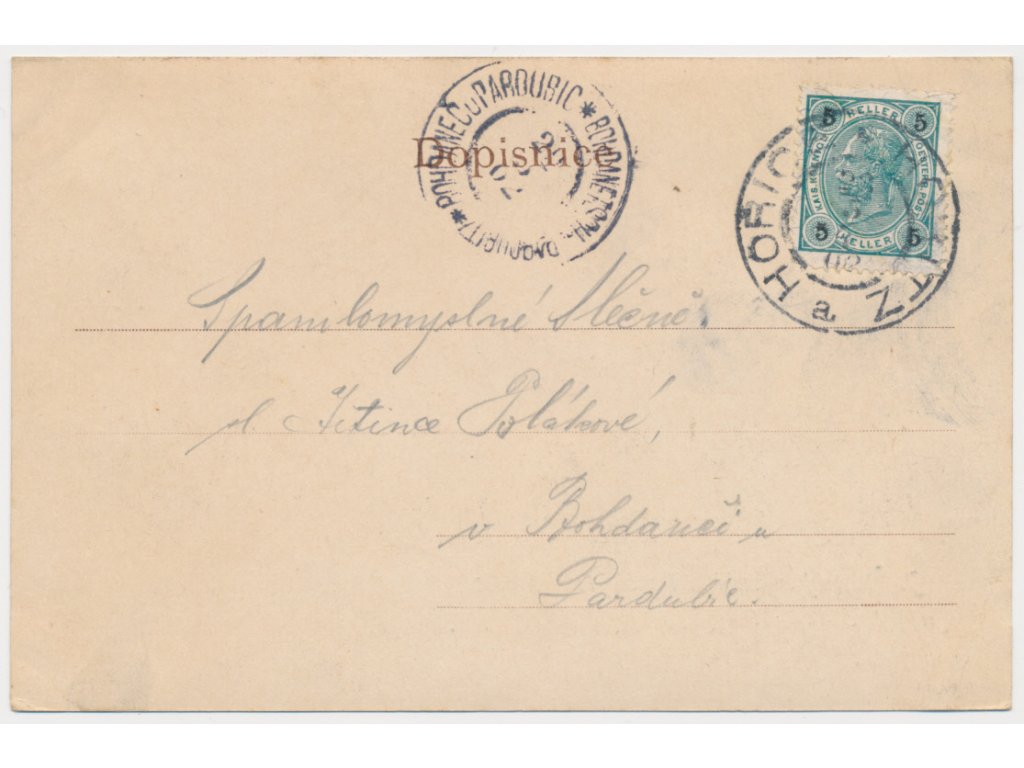 BOHDANEČ u PARDUBIC * BOHDANETSCH - PARDUBITZ *
Dopisnice
5 HELLER 5
KAIS. KÖNIGL. OESTERR. POST
5 HELLER 5
HOŘIC
a
TZ
02
Spanilomyslné Slečně
sl. Jitince Polákové,
v Bohdanči u
Pardubic.